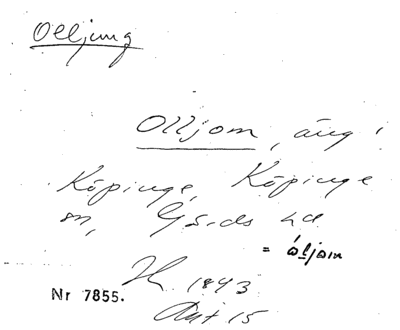 Olljung
Olljom, äng i
Köpinge, Köpinge
sn, Gärds hd
= ål̲jom
1843
Nr 7855.
Akt 15